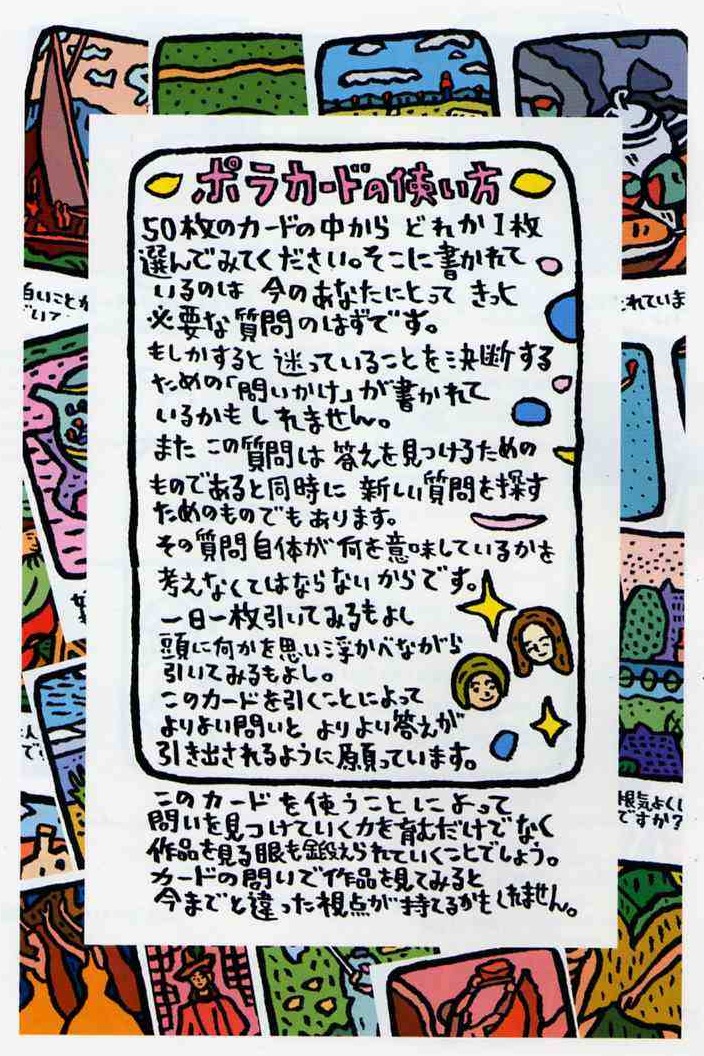 ポラカードの使い方
50枚のカードの中から どれか1枚
選んでみてください。そこに書かれて
いるのは 今のあなたにとって きっと
必要な質問のはずです。
もしかすると 迷っていることを決断する
ための「問いかけ」が書かれて
いるかもしれません。
また この質問は 答えを見つけるための
ものであると同時に 新しい質問を探す
ためのものでもあります。
その質問自体が何を意味しているかを
考えなくてはならないからです。
一日一枚引いてみるもよし
頭に何かを思い浮かべながら
引いてみるもよし。
このカードを引くことによって
よりよい問いと よりよい答えが
引き出されるように願っています。
このカードを使うことによって
問いを見つけていく力を育むだけでなく
作品を見る眼も鍛えられていくことでしょう。
カードの問いで作品を見てみると
今までと違った視点が持てるかもしれません。
白いことか
れていま
根気よくし
ですか?